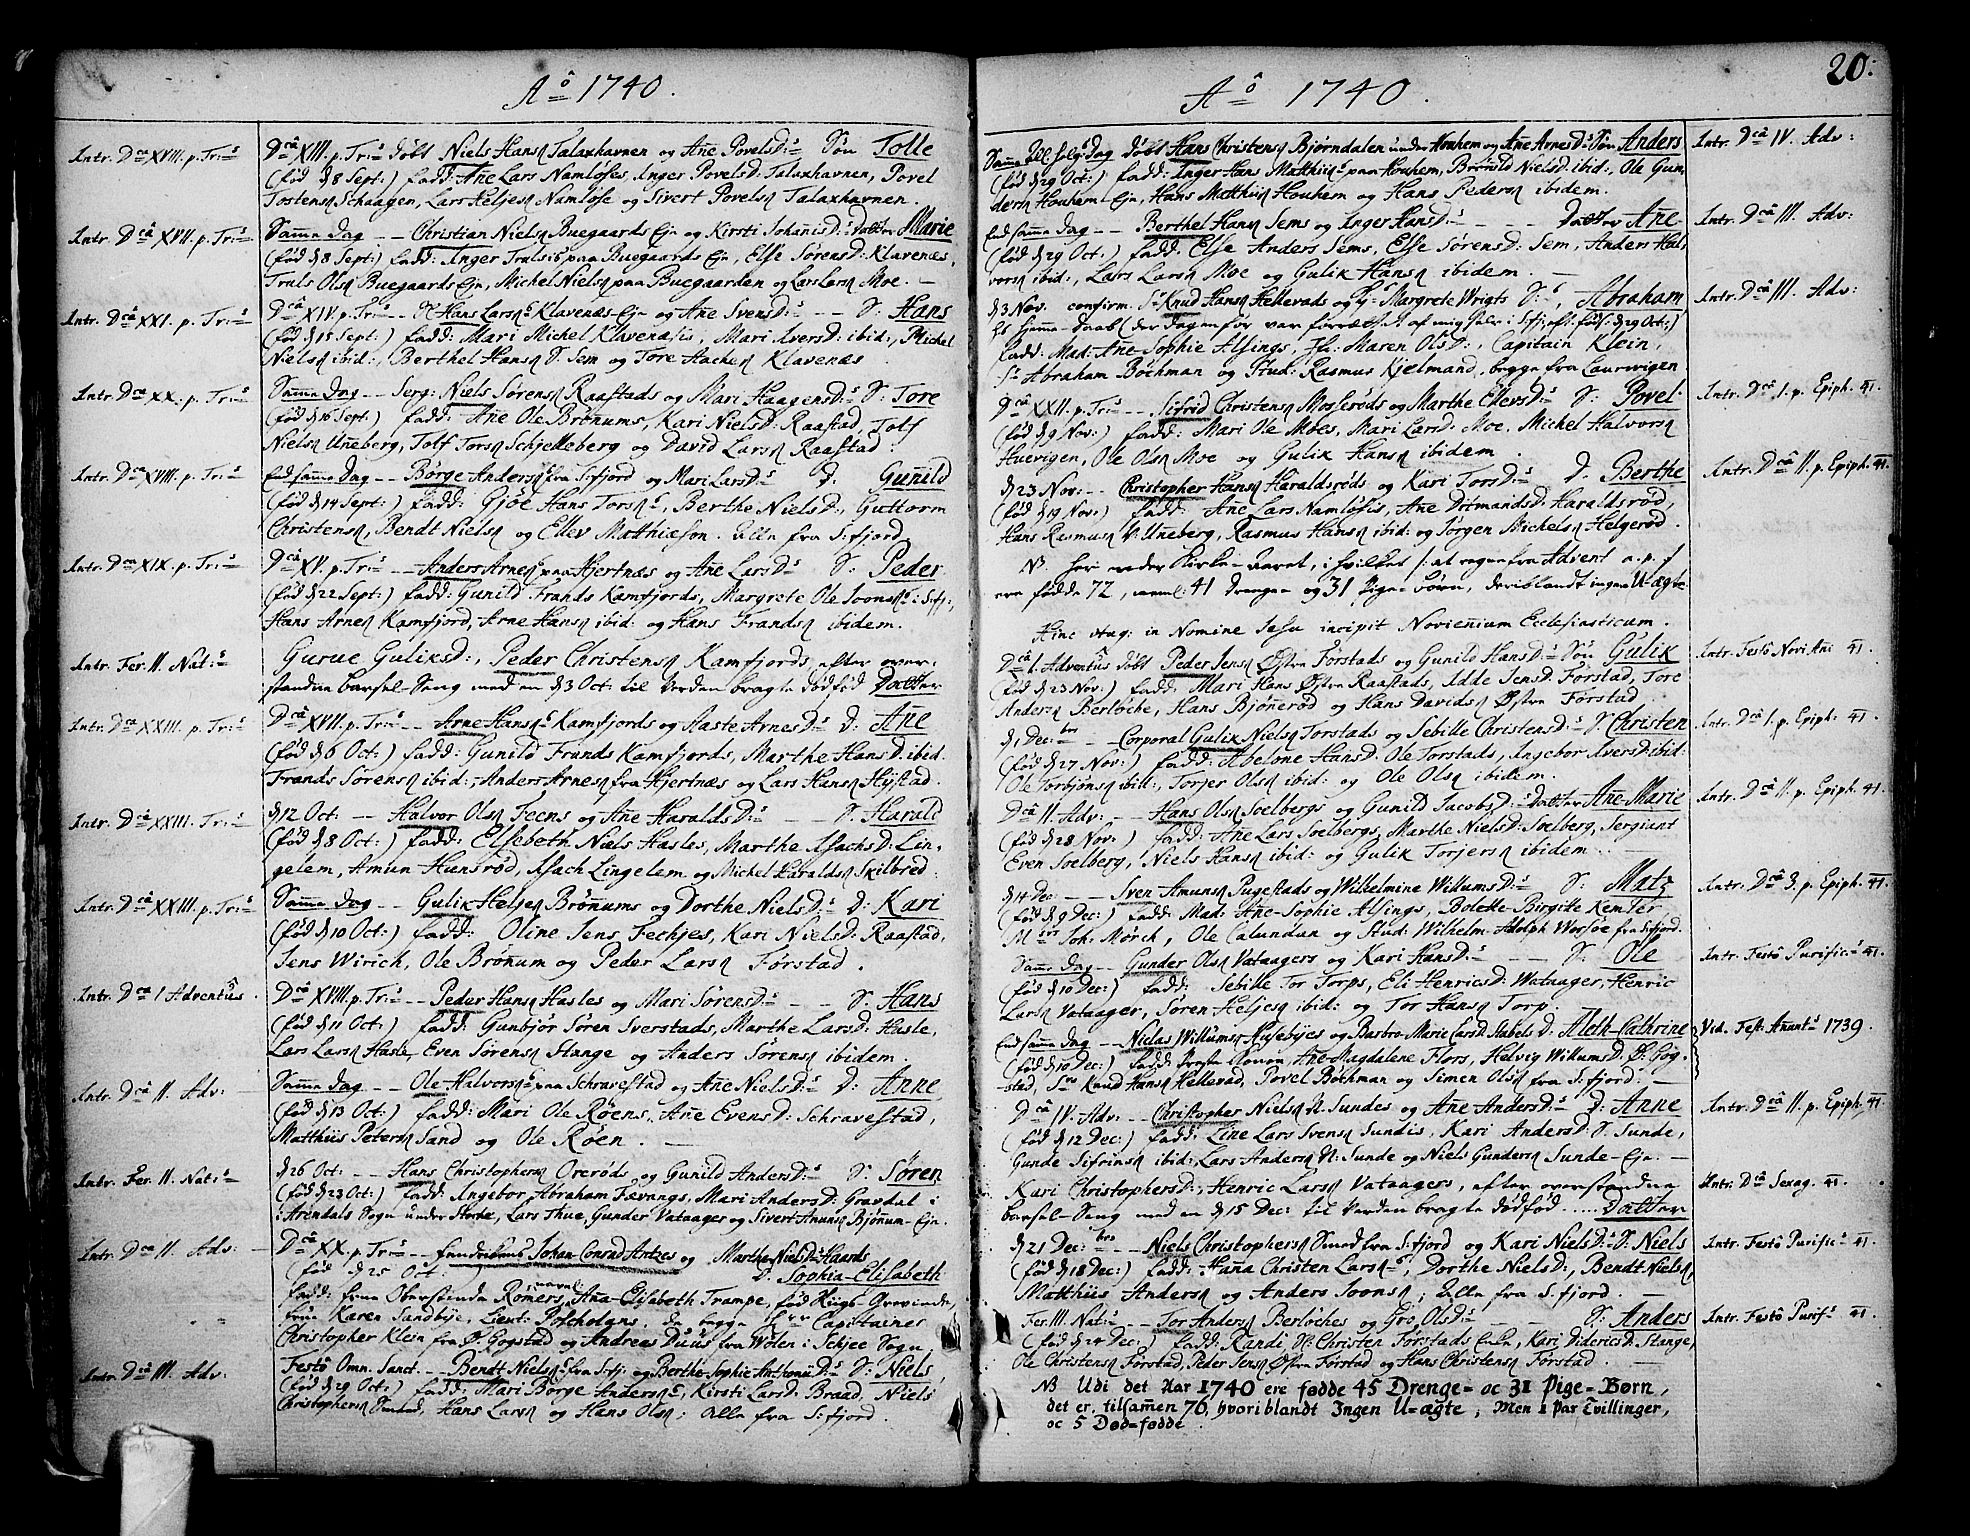 Aô 1740.
Intr. Dca XVII. p. Tr:s
Dcâ XIII. p. Tr:s döbt Niels Hansn Talaxhavnen og Ane Povels D:s Sön Tolle
(fød d 8 Sept:) fadd: Ane Lars Namløses, Inger Povels D: Talaxhavnen, Povel
Tostensn Schaagen, Lars Heljesn Namløse og Sivert Povelsn Talaxhavnen.
Intr. Dcâ XVII. p. Tr:s
Samme Dag -- Christian Nielsn Buegaards Eje og Kirsti Johanis D:s Datter Marie
(fød d 8 Sept:) fadd: Inger Truls:s paa Buegaards Eje, Else Sørens D: Klavenæs,
Truls Olsn Buegaards Eje, Michel Nielsn paa Buegaarden og Lars Larsn Moe. —
Intr. Dcâ XXI. p. Tr:s
Dcâ XIV. p. Tr:s -- Hans Larsn Klavenæs-Eje og Ane Svens D:s -- S: Hans
(fød d 15 Sept:) fadd: Mari Michel Klavenæsis, Mari Ivers D: ibid:, Michel
Nielsn ibid:, Berthel Hansn S. Sem og Tore Hachesn Klavenæs
Intr. Dca XX. p. Tr:s
Samme Dag -- Serg: Niels Sørensn Raastads og Mari Haagens D:s S: Tore
(fød d 16 Sept:) fadd: Ane Ole Brønums, Kari Niels D: Raastad, Tolf
Nielsn Uneberg, Tolf Torsn Schjelleberg og David Larsn Raastad.
Intr. Dca XVIII. p. Tr:s
End samme Dag -- Børge Andersn fra S:fjord og Mari Lars D:s D. Gunild
(fød d 14 Sept:) fadd: Gjøe Hans Torsn, Berthe Niels D:, Guttorm
Christensn, Bendt Nielsn og Ellev Matthiæson. Alle fra S:fjord.
Intr. Dca XIX. p. Tr:s
Dcâ XV. p. Tr:s -- Anders Arnesn paa Hjertnæs og Ane Lars D:s S: Peder
(fød d 22 Sept:) fadd: Gunild Frands Kamfjords, Margrete Ole Joonsn i S:fj:,
Hans Arnesn Kamfjord, Arne Hansn ibid: og Hans Frandsn ibidem.
Intr. Fer. II. Nat:s
Gurue Guliks D:, Peder Christensn Kamfjords, efter over-
standne barsel-Seng med en d 3 Oct: til Verden bragte dødfød Datter
Intr. Dca XXIII. p. Tr:s
Dcâ XVII. p. Tr:s -- Arne Hansn Kamfjords og Aaste Arnes D:s D: Ane
(fød d 6 Oct:) fadd: Gunild Frands Kamfjords, Marthe Hans D: ibid:
Frands Sørensn ibid:, Anders Arnesn fra Hjertnæs og Lars Hansn Hystad.
Intr. Dcâ XXIII. Tr:s
d 12 Oct: -- Halvor Olsn Feens og Ane Haralds D:s -- S: Harald
(fød d 8 Oct:) fadd: Elsebeth Niels Hasles, Marthe Isachs D: Lin-
gelem, Amun Hunsrød, Isach Lingelem og Michel Haraldsn Skilbred.
Intr. Dcâ XXIII. p. Tr:s
Samme Dag -- Gulik Heljesn Brønums og Dorthe Niels D:s D: Kari
(fød d 10 Oct:) fadd: Oline Jens Fechjes, Kari Niels D: Raastad,
Jens Wirich, Ole Brønum og Peder Larsn Førstad.
Intr. Dca I Adventûs.
Dcâ XVIII. p. Tr:s -- Peder Hansn Hasles og Mari Sørens D:s -- S: Hans
(fød d 11 Oct:) fadd: Gunbjør Søren Sverstads, Marthe Lars D: Hasle,
Lars Larsn Hasle, Even Sørensn Stange og Anders Sørensn ibidem.
Intr. Dcâ II. Adv:
Samme Dag -- Ole Halvorsn paa Schravestad og Ane Niels D:s D: Anne
(fød d 13 Oct:) fadd: Mari Ole Røens, Ane Evens D: Schravestad,
Matthiis Petersn Sand og Ole Røen. —
Intr. Fer. II. Nat:s
d 26 Oct: -- Hans Christophersn Orerøds og Gunild Anders D:s S: Søren
(fød d 23 Oct:) fadd: Ingebor Abraham Fevangs, Mari Anders D: Gravdal i
i Arendals Sogn under Stocke, Lars Thue, Gunder Vataager og Sivert Amunsn Bjønum-Eje.
Intr. Dca II. Adv:
Dcâ XX. p. Tr:s -- Fendrikens Johan Conrad Antzes og Marthe Niels D: Haards
(fød d 25 Oct. D: Sophia-Elisabeth
fadd: frue Oberstinde Rømers navnl: Ana-Elisabeth Trampe, fød Rigs-Grevinde,
frue Karen Sandbye, Lieut: Poscholans. de begge Hrrr Capitainer
Christopher Klein fra Ø. Gogstad og Andreas Duus fra Wølen i Schjee Sogn
Intr. Dcâ III. Adv:
Festô Omn. Sanct. -- Bendt Nielsn fra S:fj: og Berthe-Sophie Anthonii D:s S: Niels,
(fød d 29 Oct:) fadd: Mari Børge Andersn, Kirsti Lars D: Braad, Niels
Christophersn Smed Hans Larsn og Hans Olsn; Alle fra S:fjord
Aô 1740. 20:
Samme Dag døbt Hans Christensn Bjørndalen under Houhem og Ane Arnes D:s Sön Anders
(fød d 29 Oct:) fadd: Inger Hans Matthiis paa Houhem, Brønild Niels D: ibid:, Ole Gun-
dersn Houhem-Eje, Hans Matthiisn Houhem og Hans Pedersn ibidem.
Intr. Dcâ IV. Adv:
End samme Dag -- Berthel Hansn Sems og Inger Hans D:s -- Datter Ane
(fød d 29 Oct:) fadd: Else Anders Sems, Else Sørens D: Sem, Anders Hal-
vorsn ibid:, Lars Larsn Moe og Gulik Hansn ibidem. —
Intr. Dcâ III. Adv:
d 3 Nov. confirm. Sr Knud Hansn Hellevads og Margrete Wrigts S:, Abraham,
hs hjemme-Daab (der dagen før var forrættet af mig selv i S:fj: eft. føds: d 29 Oct:)
fadd: Mad: Ane-Sophie Alsings, Maren Ols D:, Capitain Klein,
Sr Abraham Bøchman og Stud: Rasmus Kjelmand, begge fra Laurvigen
Intr. Dcâ III. Adv:
Dcâ XXII. p. Tr:s -- Sifrid Christensn Mosserøds og Marthe Ellevs D:s S: Povel
(fød d 9 Nov:) fadd: Mari Ole Moes, Mari Lars D: Moe, Michel Halvorsn
Huevigen, Ole Olsn Moe og Gulik Hansn ibidem.
Intr. Dcâ I. p. Epiph. 41.
d 23 Nov: -- Christopher Hansn Haraldsrøds og Kari Tors D:s D. Berthe
(fød d 19 Nov:) fadd: Ane Lars Namløsis, Ane Ditmands D: Haraldsrød,
Hans Rasmusn V: Uneberg, Rasmus Hansn ibid: og Jørgen Michelsn Helgerød.
Intr. Dcâ II. p. Epiph. 41.
NB. her ender Kirke-Aaret, i hvilket /: at regne fra Advent a.p. /
ere fødde 72, nemml: 41 Drenge- og 31 Pige-Børn, deriblandt ingen U-ægte
Hinc itaq: in Nomine Jesu incipit Novienium Ecclesiasticum.
Dcâ I. Adventûs döbt Peder Jensn Østre Førstads og Gunild Hans D:s Sön Gulik
(fød d 23 Nov:) fadd: Mari Hans Østre Raastads, Idde Jens D: Førstad, Tore
Andersn Berløche, Hans Bjønerød og Hans Davidsn Østre Førstad.
Intr. Festô Novi Ani 41.
d 1 Dec:bris -- Corporal Gulik Nielsn Torstads og Sebille Christens D:s S. Christen
(fød d 27 Nov:) fadd: Abelone Hans D: Ole Torstads, Ingebor Ivers D: ibid:
Ole Torbjønsn ibid:, Torjer Olsn ibid: og Ole Olsn ibidem.
Intr. Dcâ I. p. Epiph: 41.
Dcâ II. Adv: -- Hans Olsn Soelbergs og Gunild Jacobs D:s Datter Ane-Marie
(fød d 28 Nov:) fadd: Ane Lars Soelbergs, Marthe Niels D: Soelberg, Sergiant
Even Soelberg, Niels Hansn ibid: og Gulik Torjersn ibidem --
Intr. Dcâ II. p. Epiph. 41.
d 14 Dec -- Sven Amunsn Pugestads og Wilhelmine Willums D:s S: Matz
(fød d 9 Dec:) fadd: Mad: Ane-Sophie Alsings, Bolette-Birgitte Kemter
Joh: Mørch, Ole Calundan og Stud: Wilhelm-Adolph Worsøe fra S:fjord.
Intr. Dcâ 3. p. Epiph. 41.
Samme Dag -- Gunder Olsn Vataagers og Kari Hans D:s S: Ole
(fød d 10 Dec:) fadd: Sebille Tor Torps, Eli Henrics D: Wataager, Henric
Larsn Vataager, Søren Heljesn ibid: og Tor Hansn Torp.
Intr. Festô Purific:s 41.
End samme Dag -- Niclas Willumsn Husebyes og Barbro-Marie Lars D: Stabels D: Aleth-Cathrine
(fød d 10 Dec:) fadd: Ane-Magdalene Flors, Helvig Willums D. Ø: Gog-
stad, Sr Knud Hansn Hellevad, Povel Bøchman og Simen Olsn fra S:fjord. —
Vid. Fest. Anunt:s 1739
Dcâ IV. Adv: -- Christopher Nielsn N. Sundes og Ane Anders D:s D: Anne
(fød d 12 Dec:) fadd: Line Lars Svensn Sundis, Kari Anders D: S: Sunde,
Gunde Sifrinsn ibid: Lars Andersn N: Sunde og Niels Gundersn Sunde-Eje. —
Intr. Dcâ II. p. Epiph. 41.
Kari Christophers D:, Henric Larsn Vataagers, efter overstandne
barsel-Seng med en d 15 Dec: til Verden bragte dødfød ..... Datter
Intr. Dcâ Sexag. 41.
d 21 Dec:bris -- Niels Christophersn Smed fra S:fjord og Kari Niels D:s S: Niels
(fød d 18 Dec:) fadd: Hana Christen Larsn, Dorthe Niels D:, Bendt Nielsn,
Matthiis Andersn og Anders Joonsn; Alle fra S:fjord.
Intr. Festô Purific:s 41.
Fer. III. Nat:s -- Tor Andersn Berløches og Gro Ols D:s -- S: Anders
(fød d 24 Dec:) fadd: Randi Christen Torstads Enke, Kari Diderics D: Stange,
Ole Christensn Førstad, Peder Jensn Østre Førstad og Hans Christensn Førstad. —
Intr. Festô Purif:s 41.
NB Udi det Aar 1740 ere fødde 45 Drenge- oc 31 Pige-Børn,
det er, tilsamen 76, hvoriblandt Ingen U-ægte, Men 1 Par Tvillinger,
oc 5 Død-fødde.